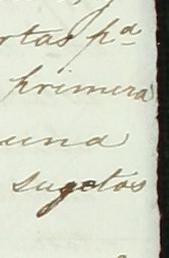 rtas pª
primera
una
sugetos